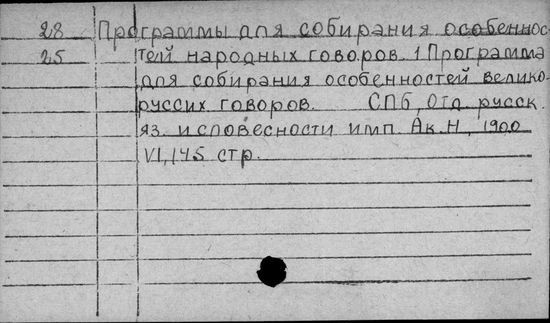 28 Программы для собирания особеннос-
25 тей народных говоров. 1 Программа
для собирания особенностей велико-
русских говоров. СПб, Отд. русск.
яз. и словесности имп. Ак. Н, 1900
VI, 145 стр.